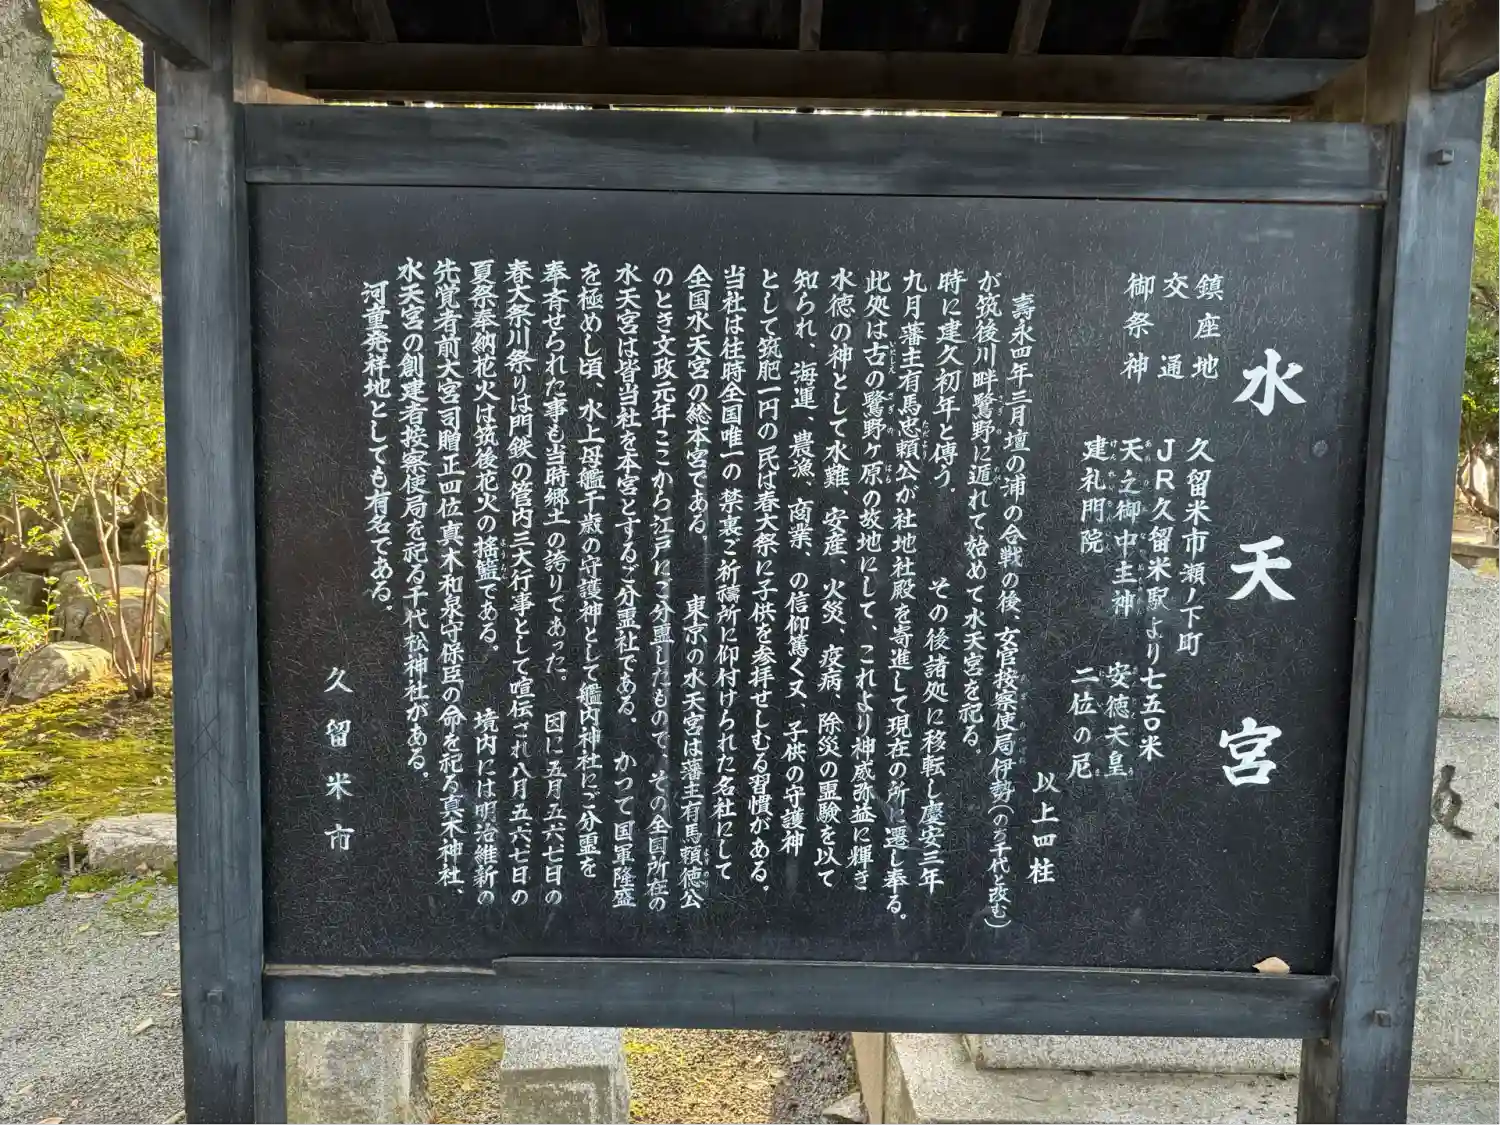 水天宮
鎮座地　久留米市瀬ノ下町
交通　ＪＲ久留米駅より七五〇米
御祭神　天之御中主神　安徳天皇
建礼門院　二位の尼
以上四柱
壽永四年三月壇の浦の合戦の後、女官按察使局伊勢（のち千代と改む）
が筑後川畔鷺野に遁れて始めて水天宮を祀る。
時に建久初年と傳う。　その後諸処に移転し慶安三年
九月藩主有馬忠頼公が社地社殿を寄進して現在の所に遷し奉る。
此処は古の鷺野ヶ原の故地にして、これより神威弥益に輝き
水徳の神として水難、安産、火災、疫病、除災の霊験を以て
知られ、海運、農漁、商業、の信仰篤く又、子供の守護神
として筑肥一円の民は春大祭に子供を参拝せしむる習慣がある。
当社は往時全国唯一の禁裏ご祈禱所に仰付けられた名社にして
全国水天宮の総本宮である。　東京の水天宮は藩主有馬頼徳公
のとき文政元年ここから江戸にご分霊したもので、その全国所在の
水天宮は皆当社を本宮とするご分霊社である。　かつて国軍隆盛
を極めし頃、水上母艦千歳の守護神として艦内神社にご分霊を
奉斉せられた事も当時郷土の誇りであった。　因に五月五六七日の
春大祭川祭りは門鉄の管内三大行事として喧伝され八月五六七日の
夏祭奉納花火は筑後花火の揺籃である。　境内には明治維新の
先覚者前大宮司贈正四位真木和泉守保臣の命を祀る真木神社、
水天宮の創建者按察使局を祀る千代松神社がある。
河童発祥地としても有名である。
久留米市